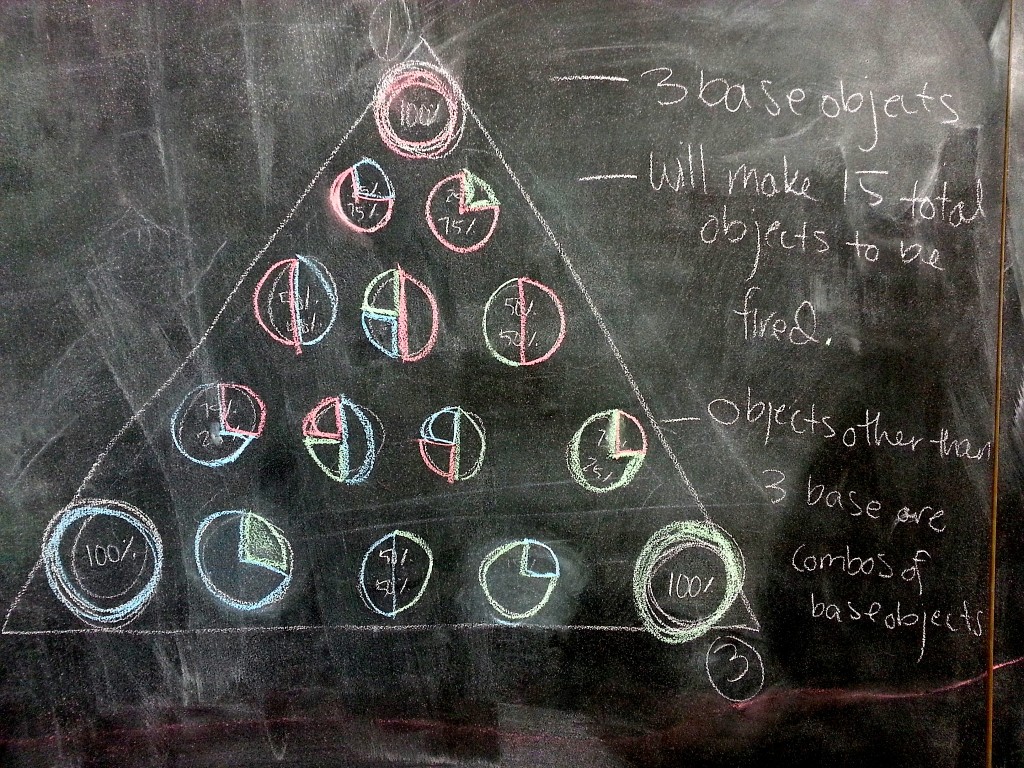 1
100%
— 3 base objects
— Will make 15 total
objects to be
fired.
75%
75%
50%
50%
50%
— Objects other than
3 base are
combos of
base objects
75%
25%
100%
50%
50%
100%
3